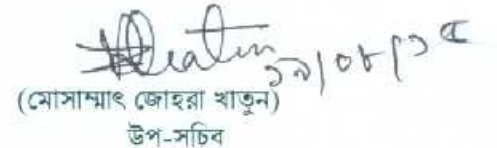 ১৯/০৮/১৫
(মোসাম্মাৎ জোহরা খাতুন)
উপ-সচিব